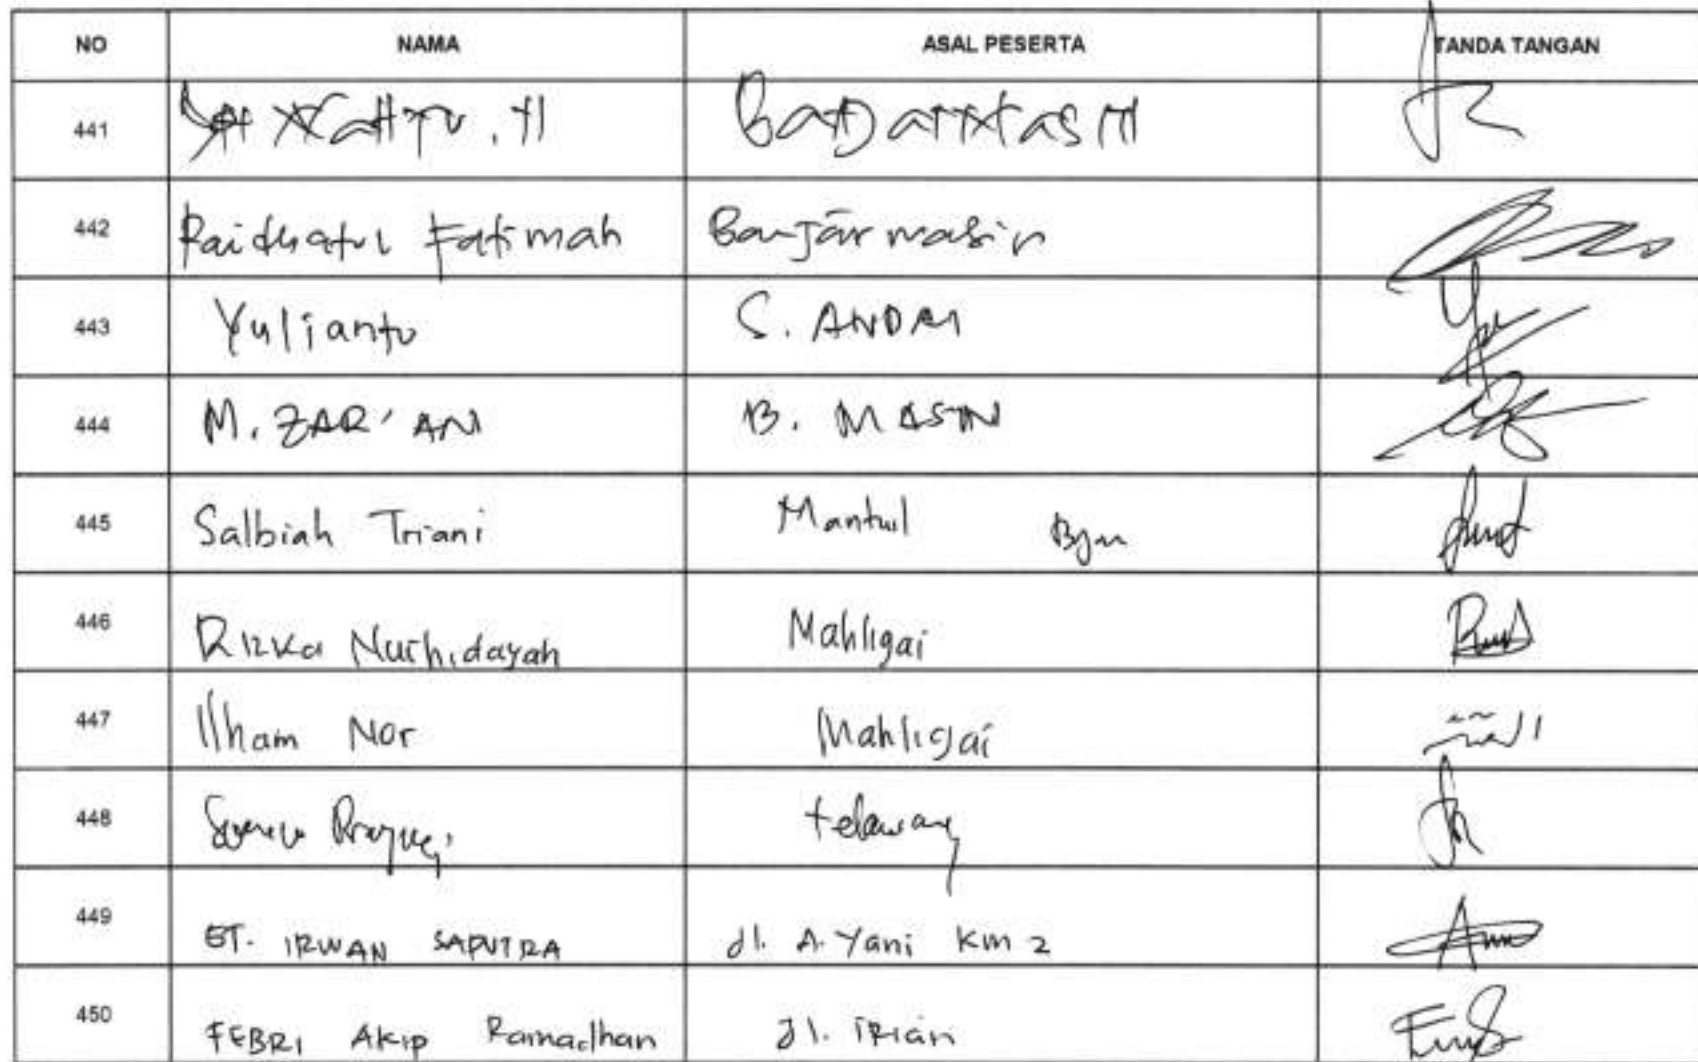 NO NAMA ASAL PESERTA TANDA TANGAN
441
442 Raidhatul Fatimah Banjarmasin
443 Yulianto S. ANDAI
444 M. ZAR'AN B. MASIN
445 Salbiah Triani Mantuil Bjm
446 Rizka Nurhidayah Mahligai
447 Ilham Nor Mahligai
448 telawang
449 IRWAN SAPUTRA Jl. A. Yani Km 2
450 FEBRI AKIP Ramadhan Jl. IRIAN